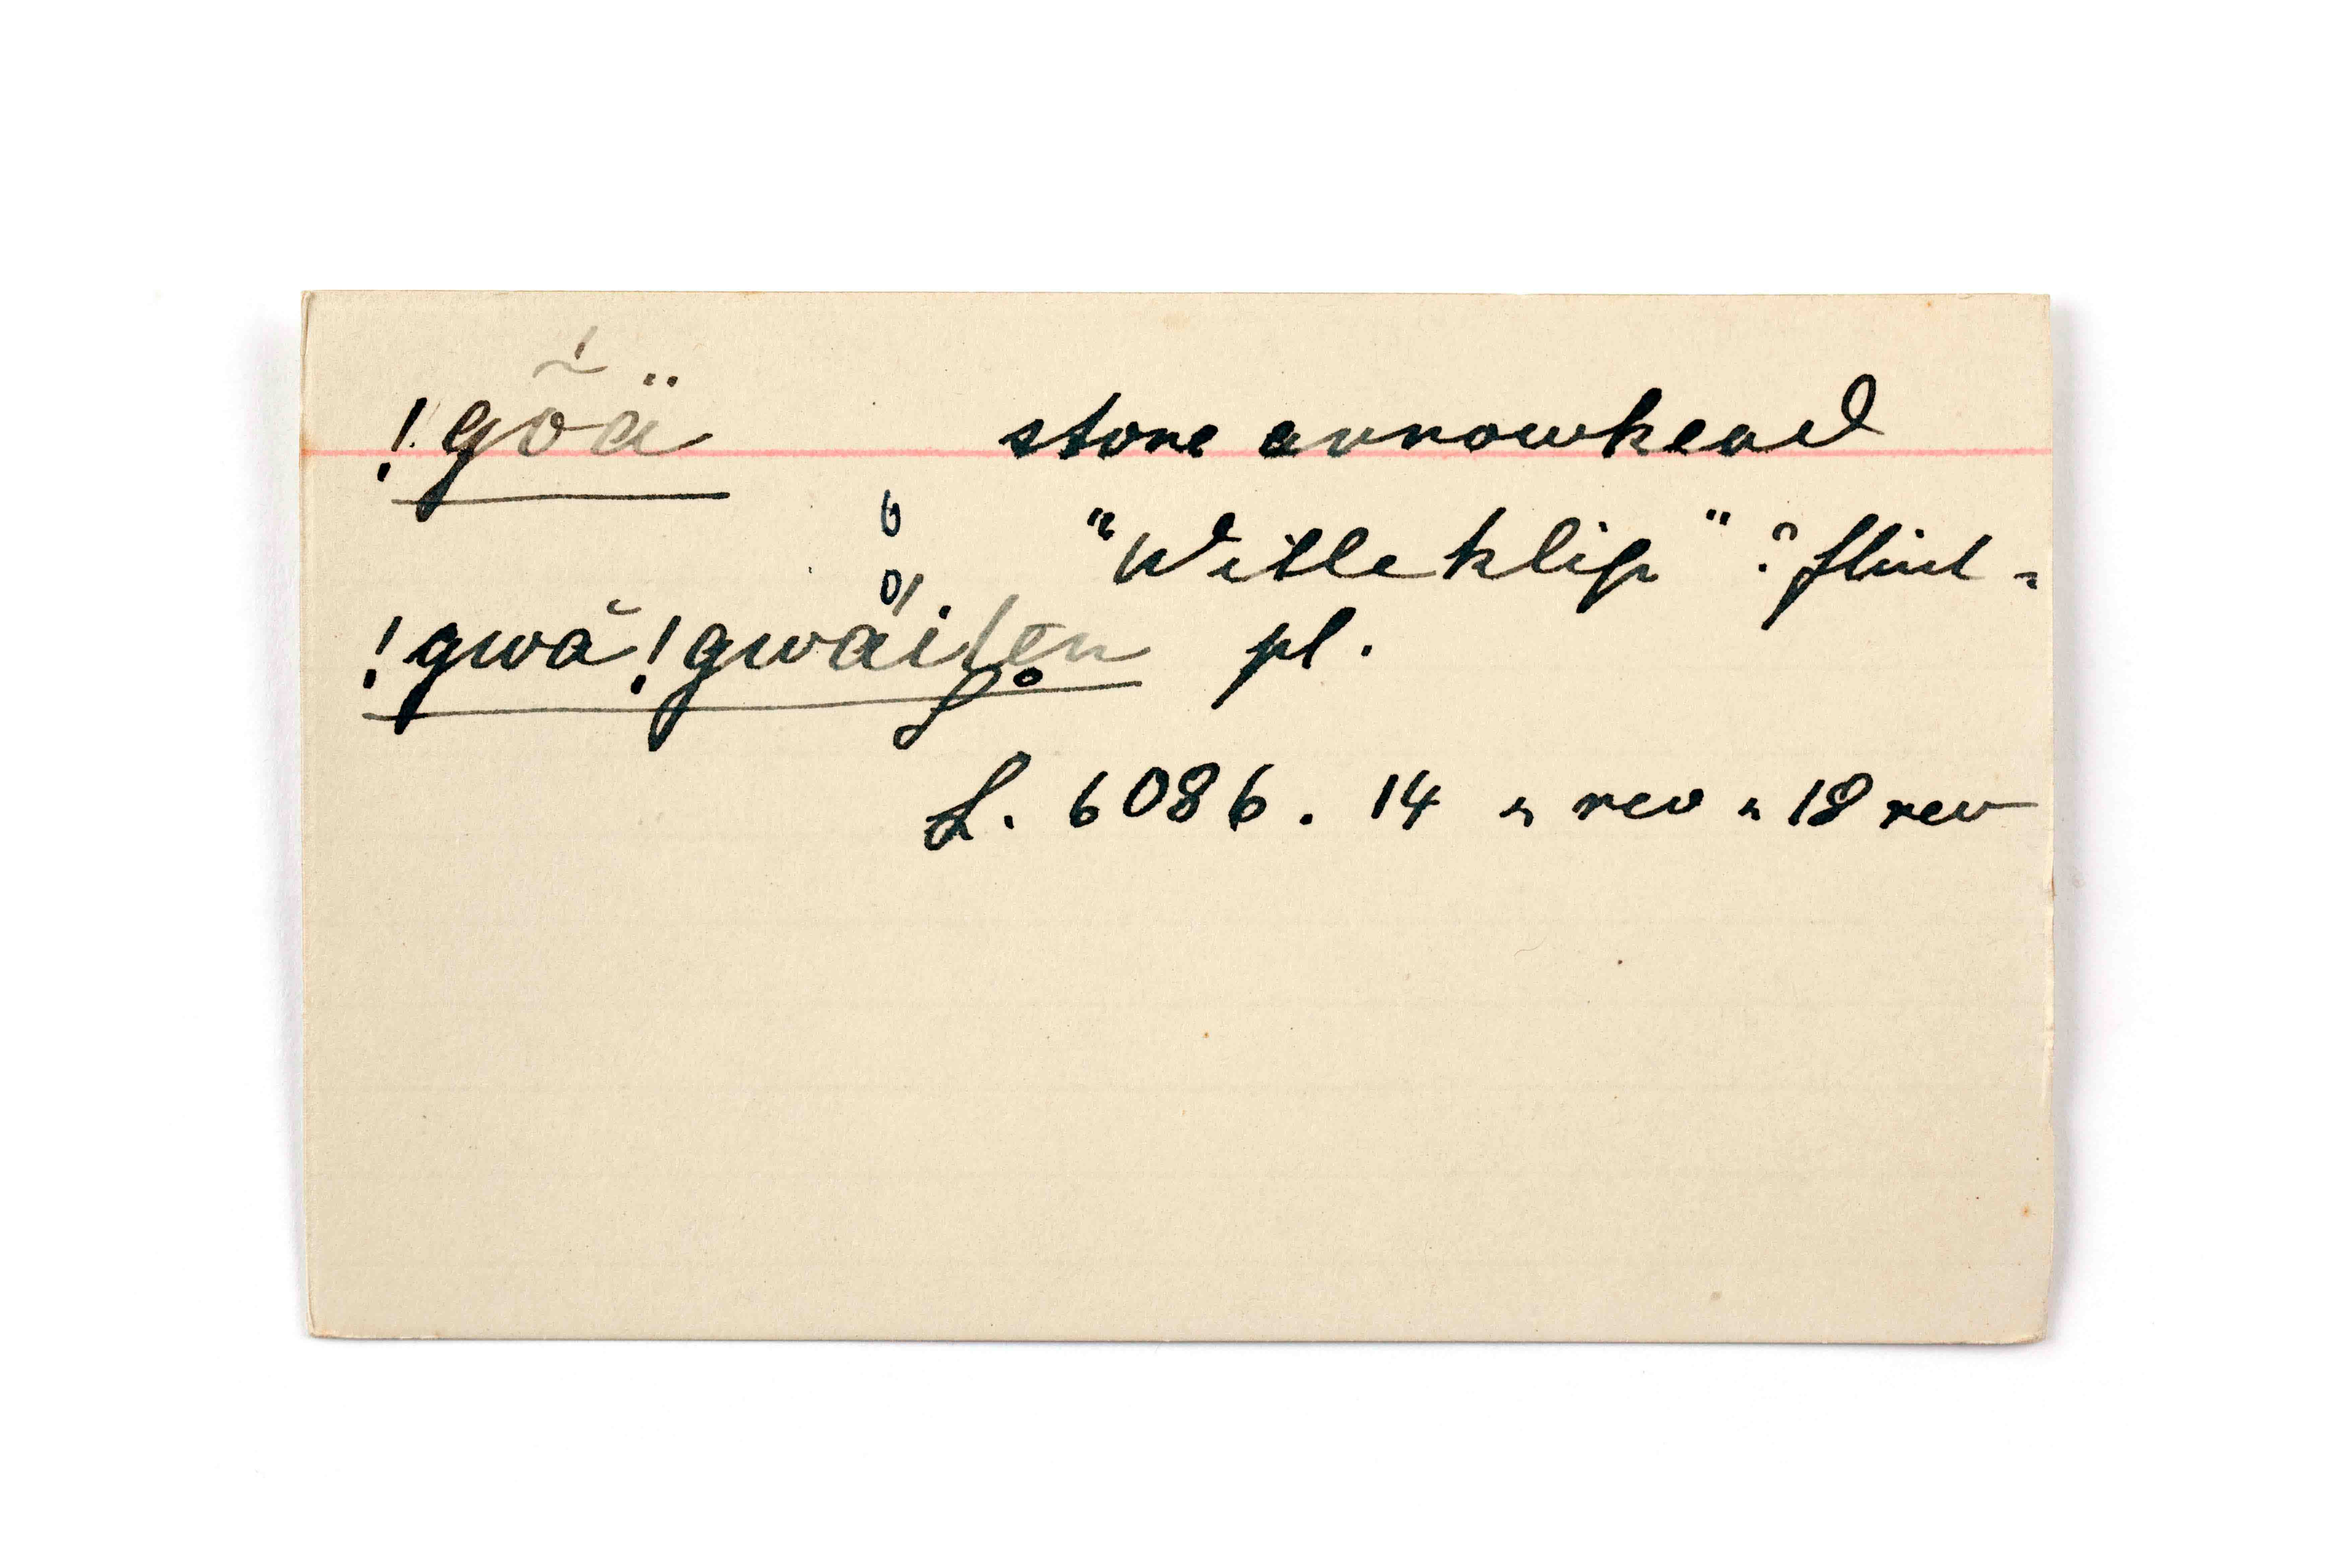 !gõä stone arrowhead
"Witte klip" ? flint -
!gwă !gwäiten pl.
L. 6086. 14 " rev " 18 rev